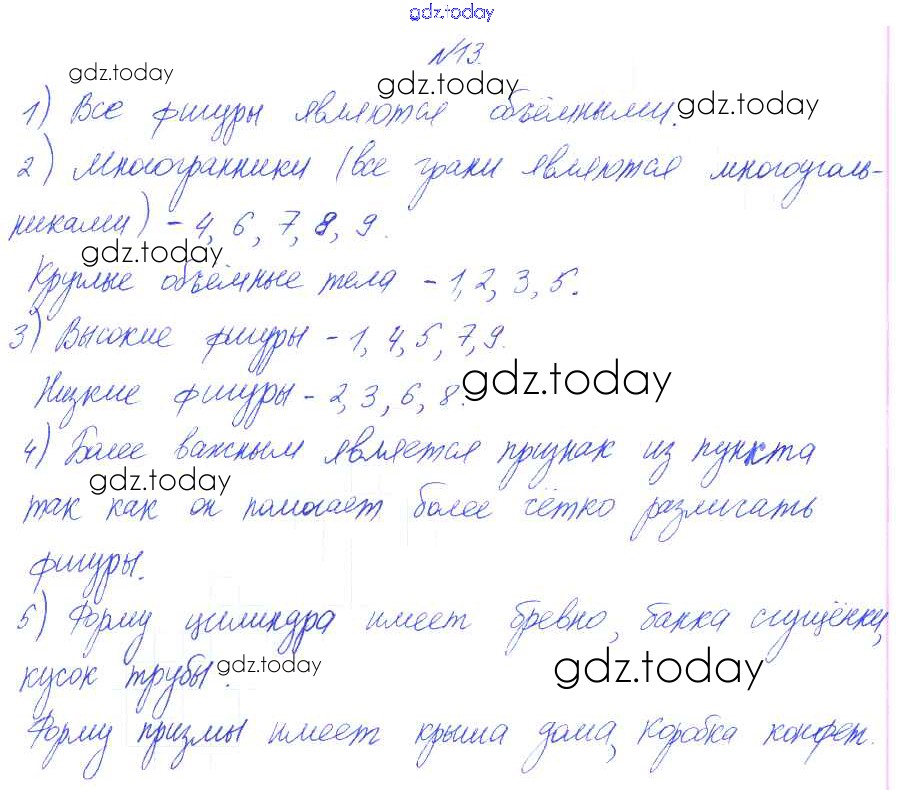 gdz.today
№13.
gdz.today gdz.today
1) Все фигуры являются объёмными. gdz.today
2) Многогранники (все грани являются многоуголь-
никами) - 4, 6, 7, 8, 9.
gdz.today
Круглые объёмные тела - 1, 2, 3, 5.
3) Высокие фигуры - 1, 4, 5, 7, 9.
Низкие фигуры - 2, 3, 6, 8. gdz.today
4) Более важным является признак из пункта
gdz.today
так как он помогает более чётко различать
фигуры.
5) Форму цилиндра имеет бревно, банка сгущёнки,
кусок трубы. gdz.today gdz.today
Форму призмы имеет крыша дома, коробка конфет.